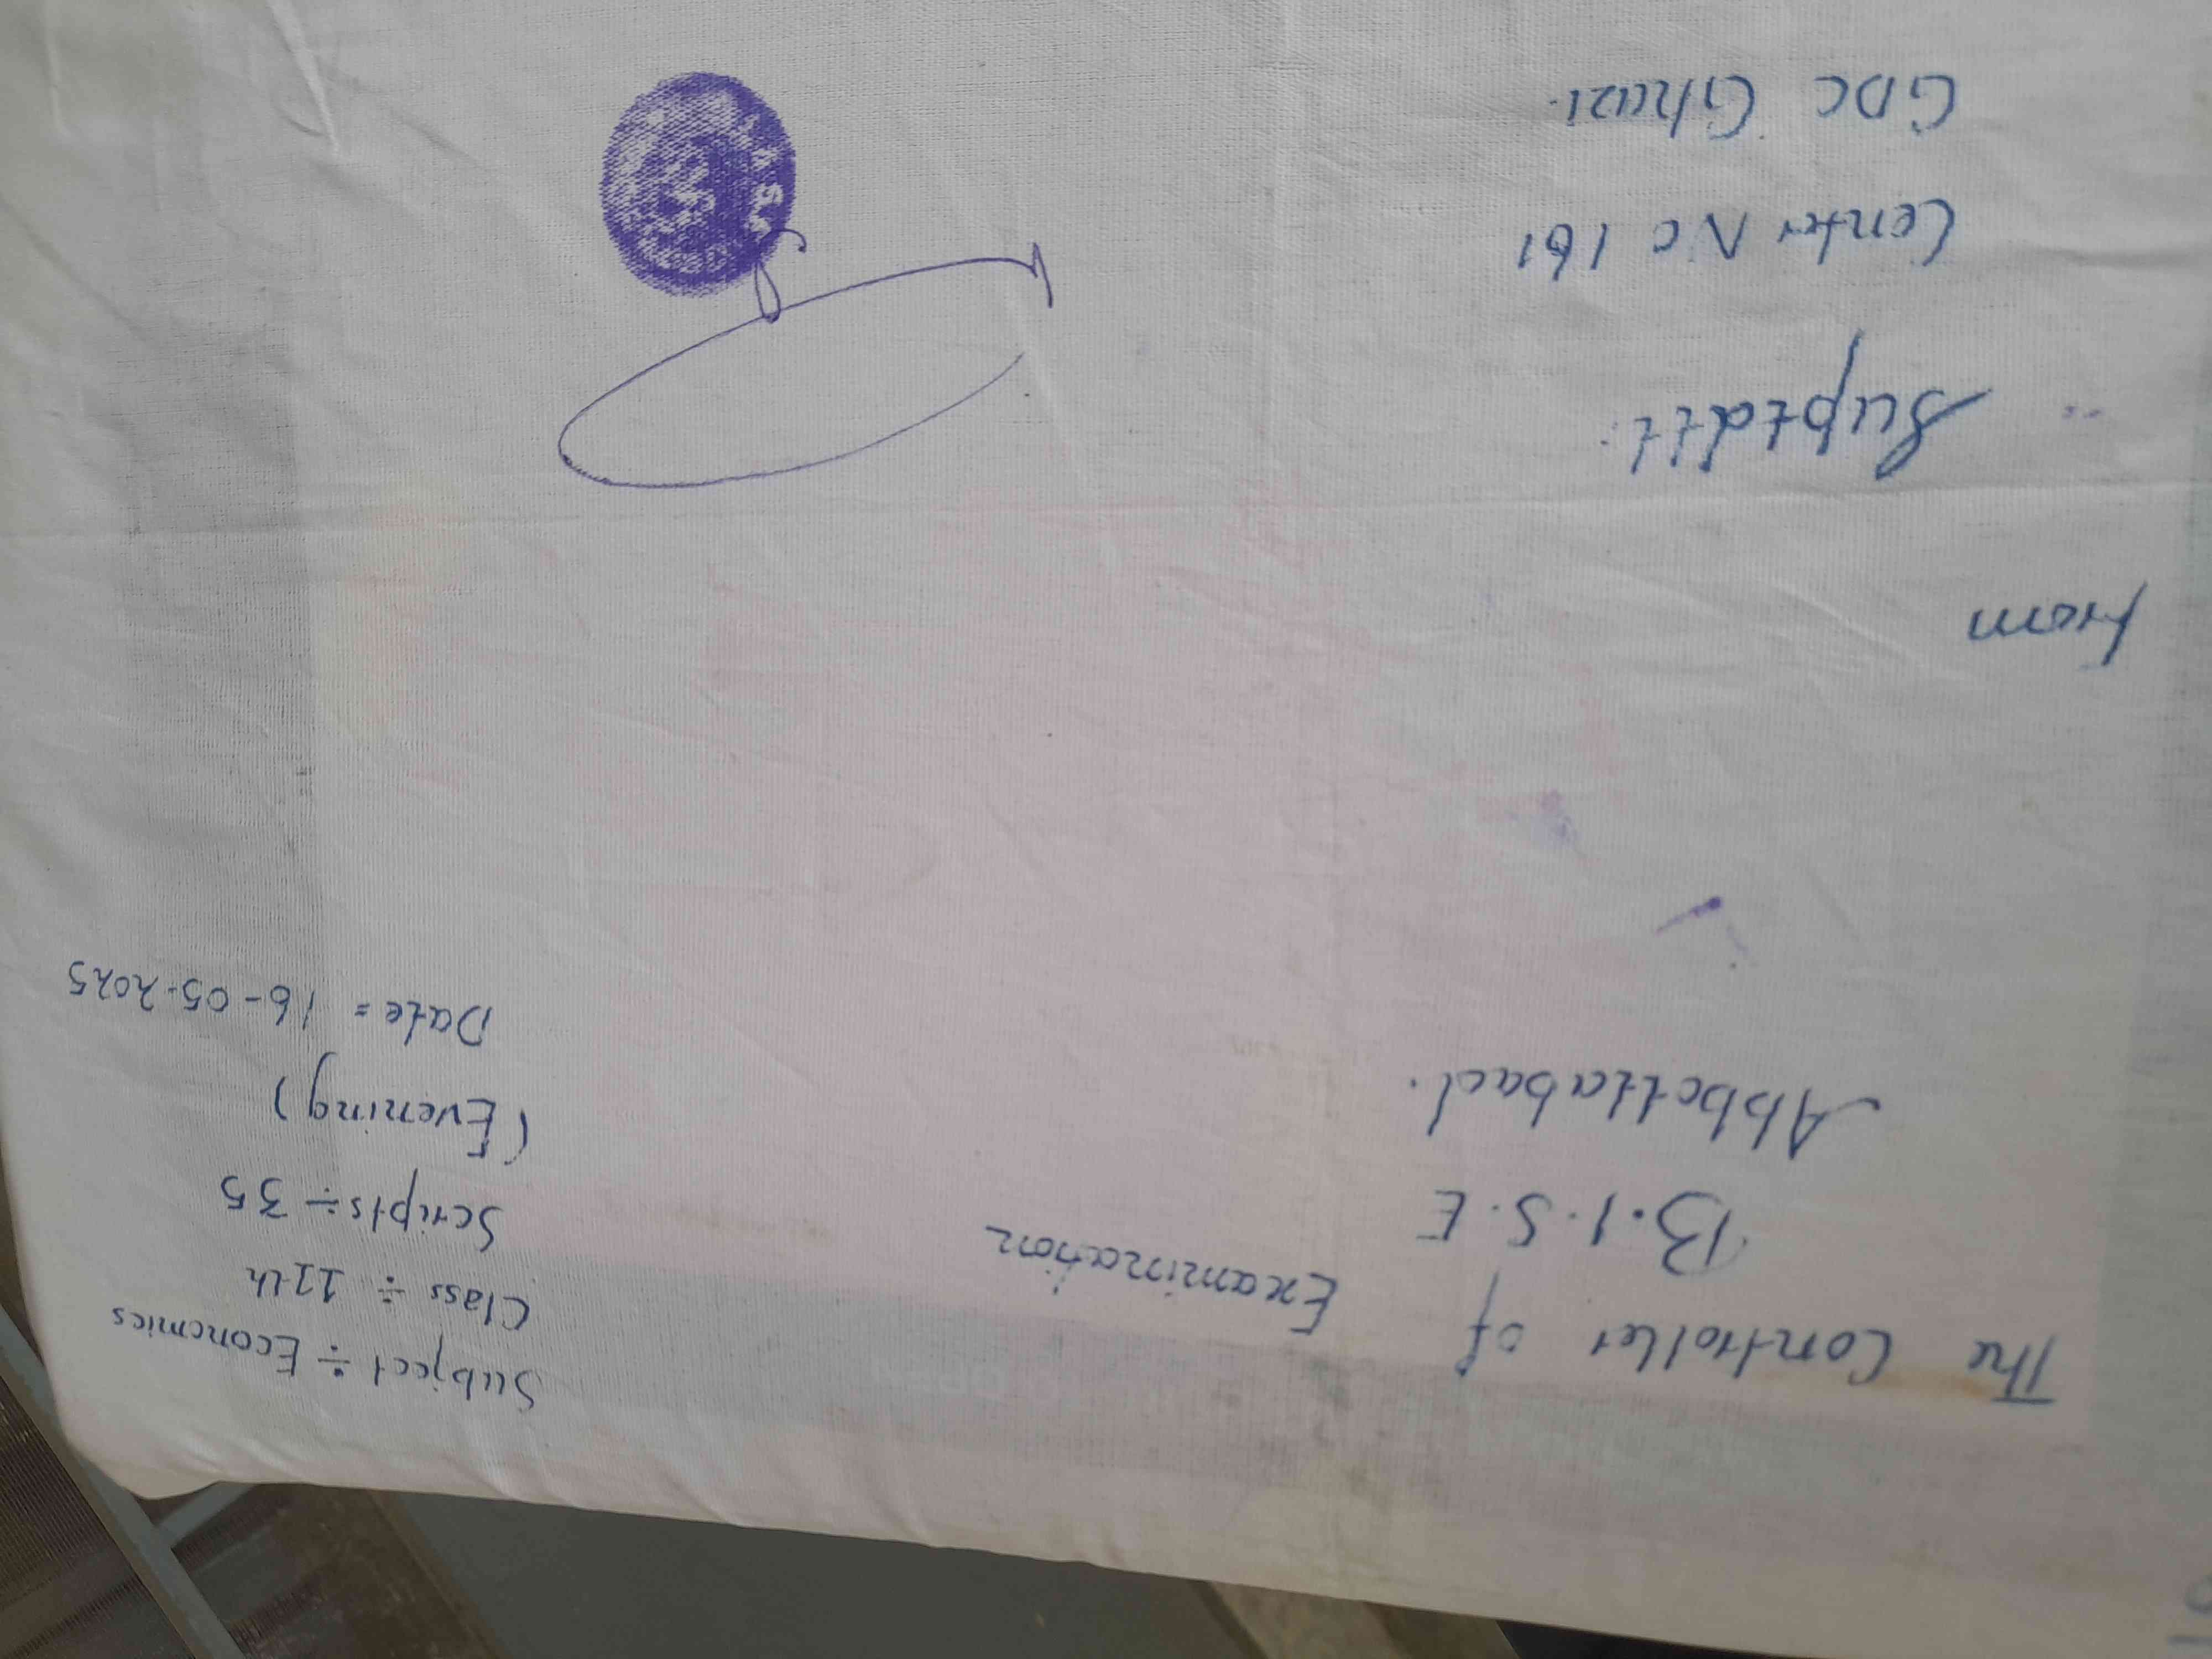 The Controller of
Examination
B.I.S.E
Abbottabad.
Subject ÷ Economics
Class ÷ 11th
Scripts ÷ 35
(Evening)
Date = 16-05-2025
From
Suptdtt:
Center No 161
GDC Ghazi.